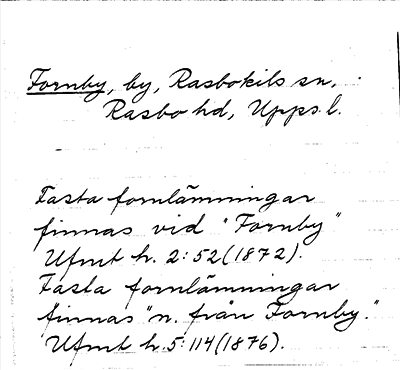 Fornby, by, Rasbokils sn,
Rasbo hd, Upps. l.
Fasta fornlämningar
finnas vid "Fornby"
Ufmt h. 2:52 (1872).
Fasta fornlämningar
finnas "n. från Fornby."
Ufmt h. 5:114 (1876).